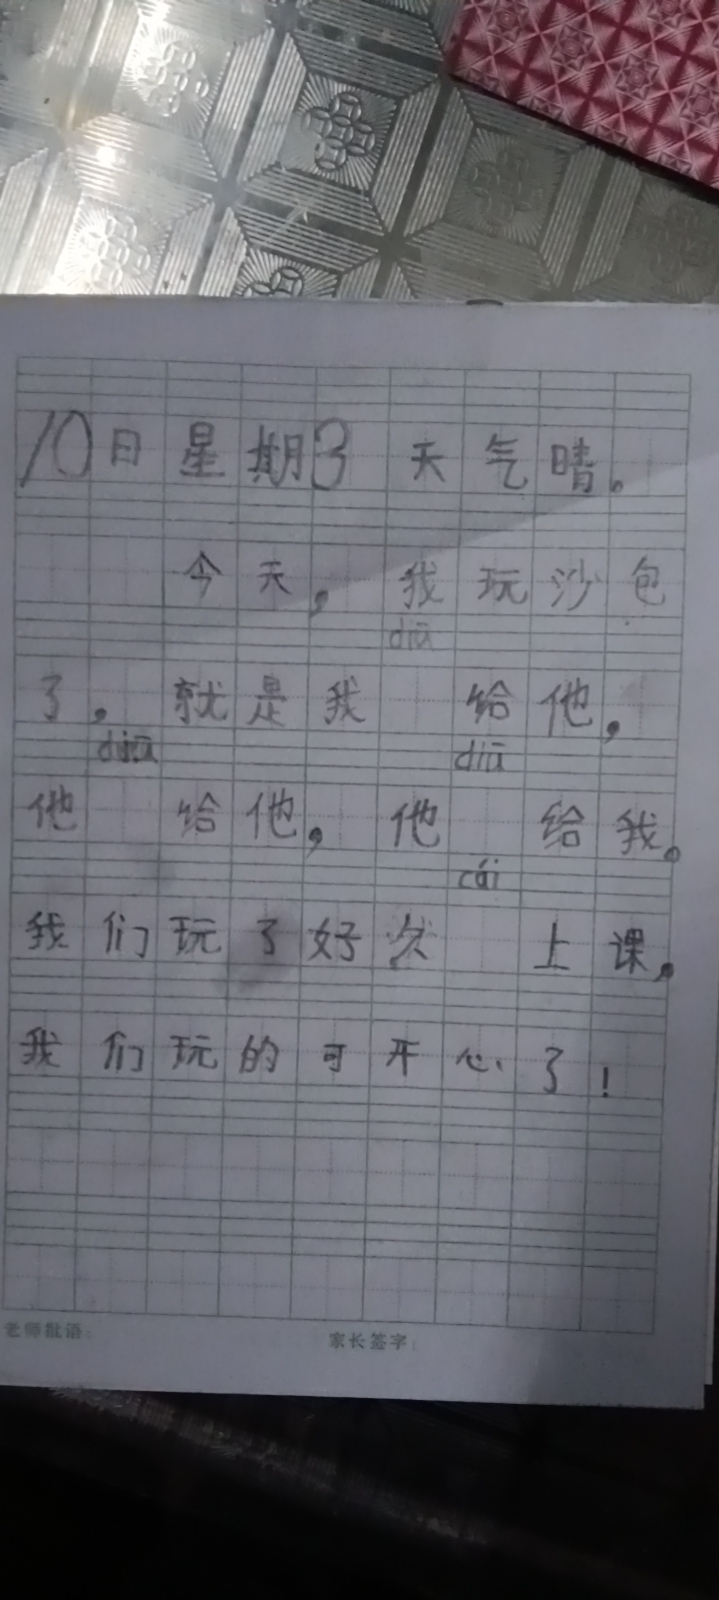 10日星期3 天气晴。
今天，我玩沙包
diū
了。就是我 给他，
diū diū
他 给他，他 给我。
cái
我们玩了好久 上课，
我们玩的可开心了！
老师批语：
家长签字：